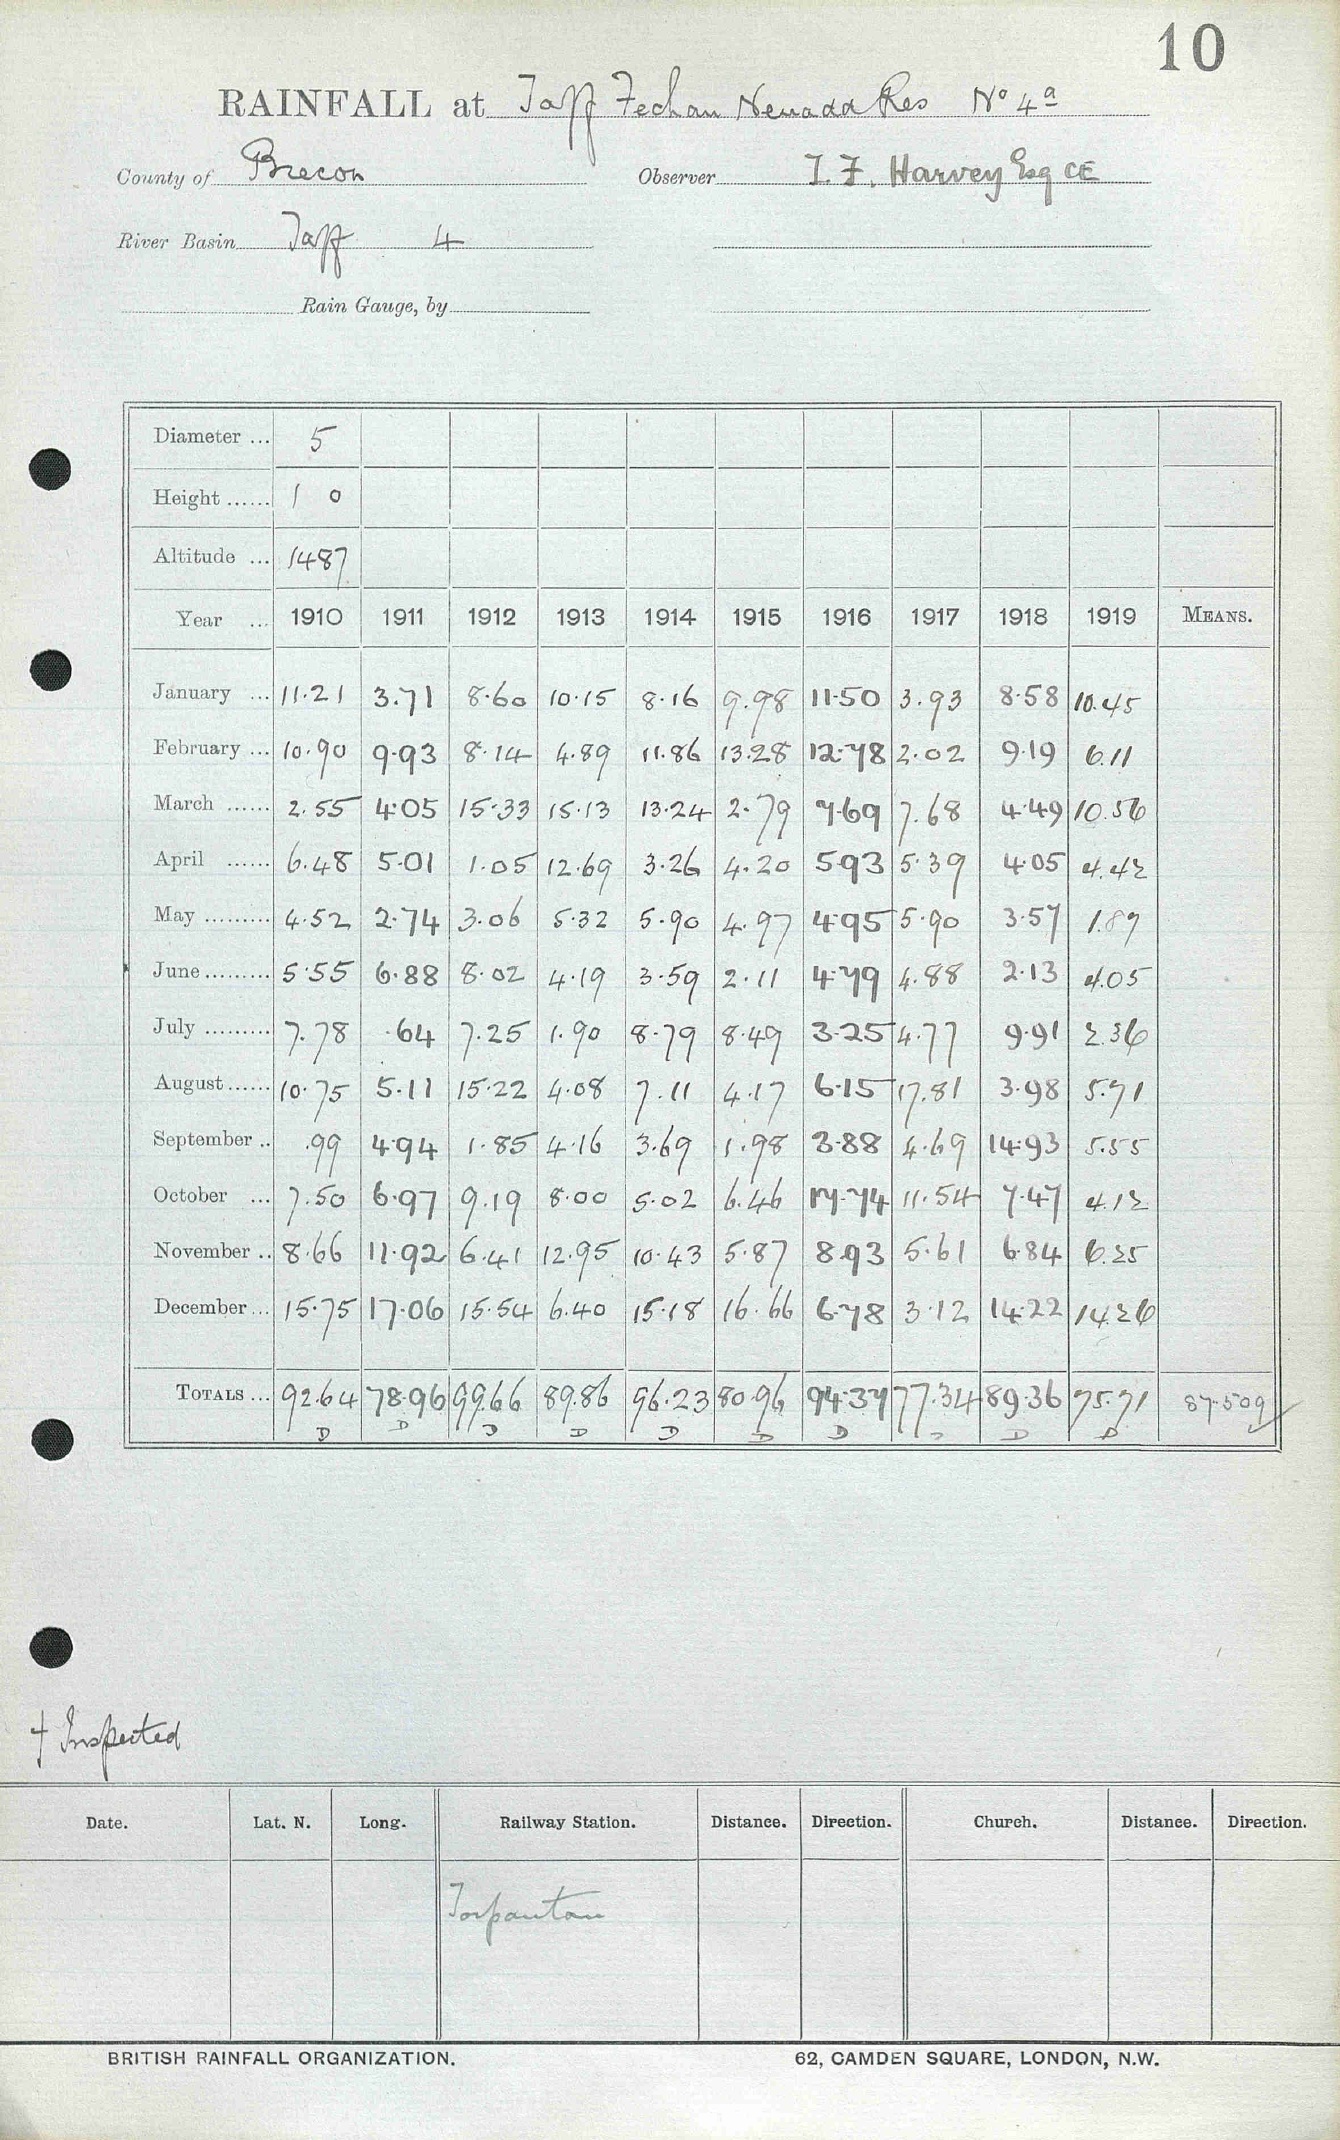 10
RAINFALL at Taff Fechan Neuadd Res No 4a
County of Brecon Observer T. F. Harvey Esq CE
River Basin Taff 4
Rain Gauge, by
Diameter ... 5
Height ...... 1 0
Altitude ... 1487
Year ... 1910 1911 1912 1913 1914 1915 1916 1917 1918 1919 MEANS.
January ... 11.21 3.71 8.60 10.15 8.16 9.98 11.50 3.93 8.58 10.45
February ... 10.90 9.93 8.14 4.89 11.86 13.28 12.78 2.02 9.19 6.11
March ...... 2.55 4.05 15.33 15.13 13.24 2.79 7.69 7.68 4.49 10.56
April ...... 6.48 5.01 1.05 12.69 3.26 4.20 5.93 5.39 4.05 4.42
May ......... 4.52 2.74 3.06 5.32 5.90 4.97 4.95 5.90 3.57 1.87
June ......... 5.55 6.88 8.02 4.19 3.59 2.11 4.79 4.88 2.13 4.05
July ......... 7.78 .64 7.25 1.90 8.79 8.49 3.25 4.77 9.91 2.36
August ...... 10.75 5.11 15.22 4.08 7.11 4.17 6.15 17.81 3.98 5.71
September .. .99 4.94 1.85 4.16 3.69 1.98 3.88 4.69 14.93 5.55
October ... 7.50 6.97 9.19 8.00 5.02 6.46 17.74 11.54 7.47 4.12
November .. 8.66 11.92 6.41 12.95 10.43 5.87 8.93 5.61 6.84 6.25
December ... 15.75 17.06 15.54 6.40 15.18 16.66 6.78 3.12 14.22 14.26
TOTALS ... 92.64 78.96 99.66 89.86 96.23 80.96 94.37 77.34 89.36 75.71 87.509
D D D D D D D D D D
† Inspected
Date. Lat. N. Long. Railway Station. Distance. Direction. Church. Distance. Direction.
Torpantau
BRITISH RAINFALL ORGANIZATION. 62, CAMDEN SQUARE, LONDON, N.W.